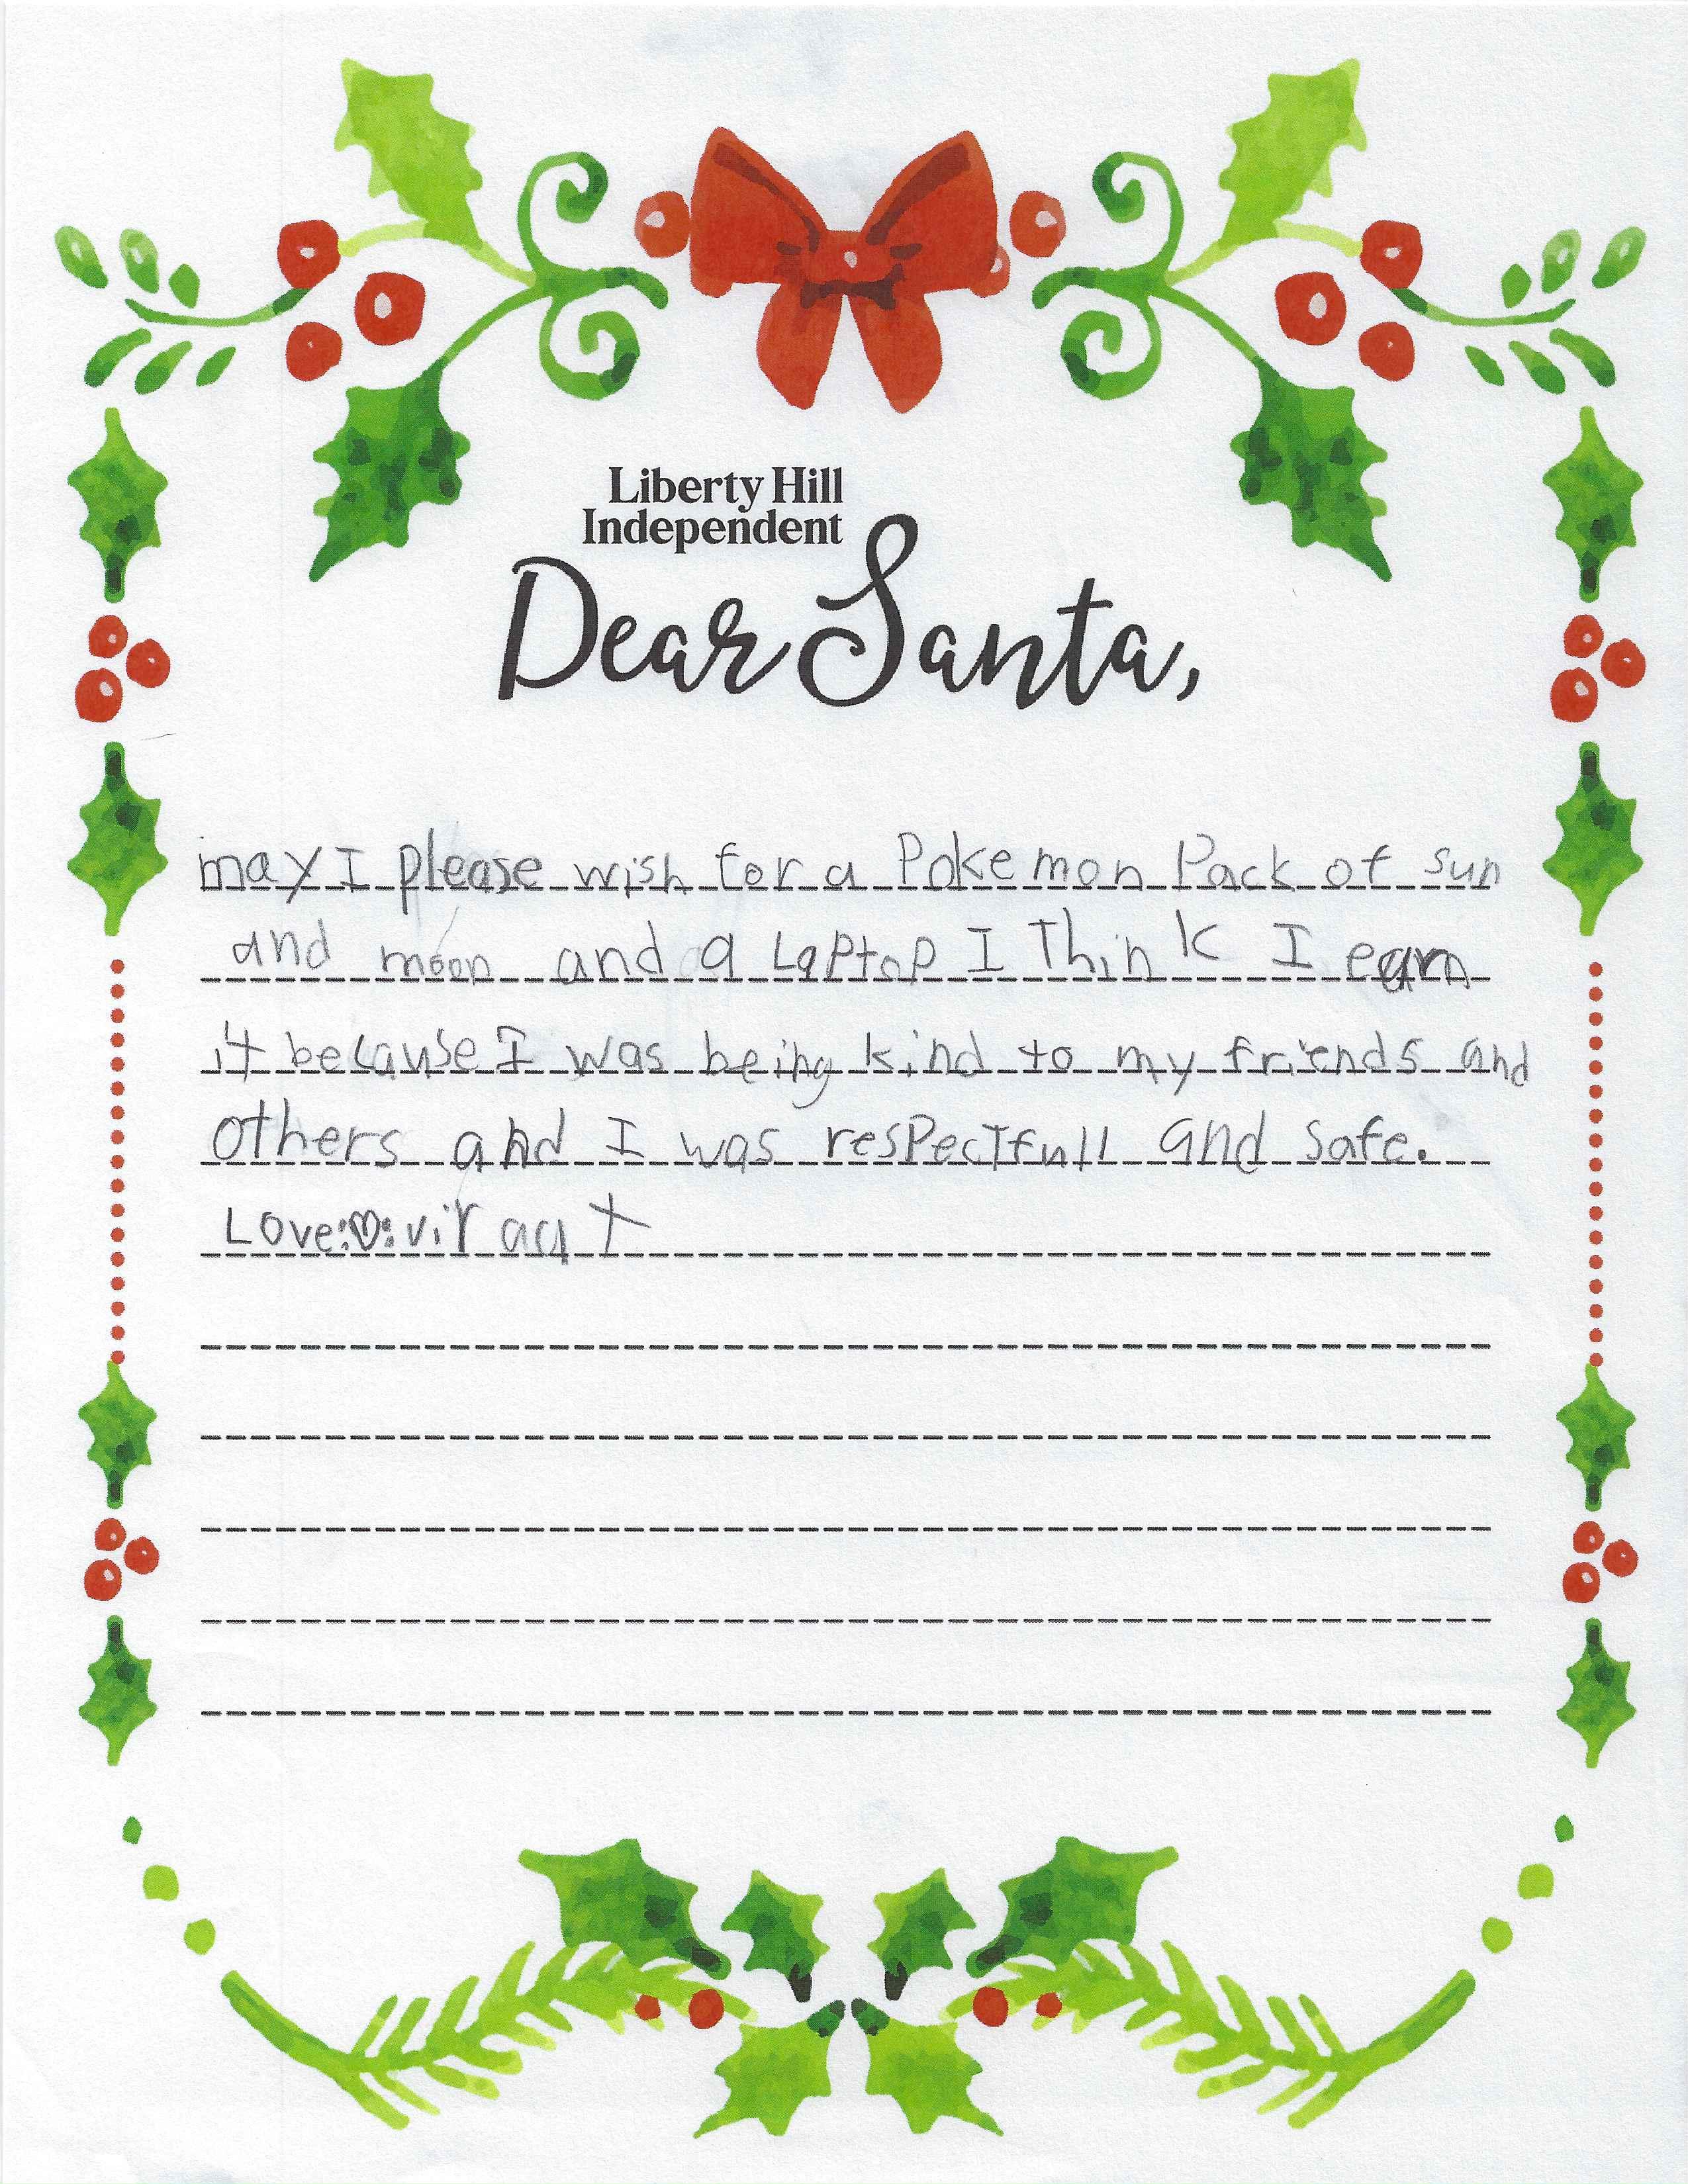 Liberty Hill
Independent
Dear Santa,
may I please wish for a Pokemon Pack of sun
and moon and a LaPtoP I Think I earn
it because I was being kind to my friends and
others and I was resPectfull and safe.
Love:♡:viraat